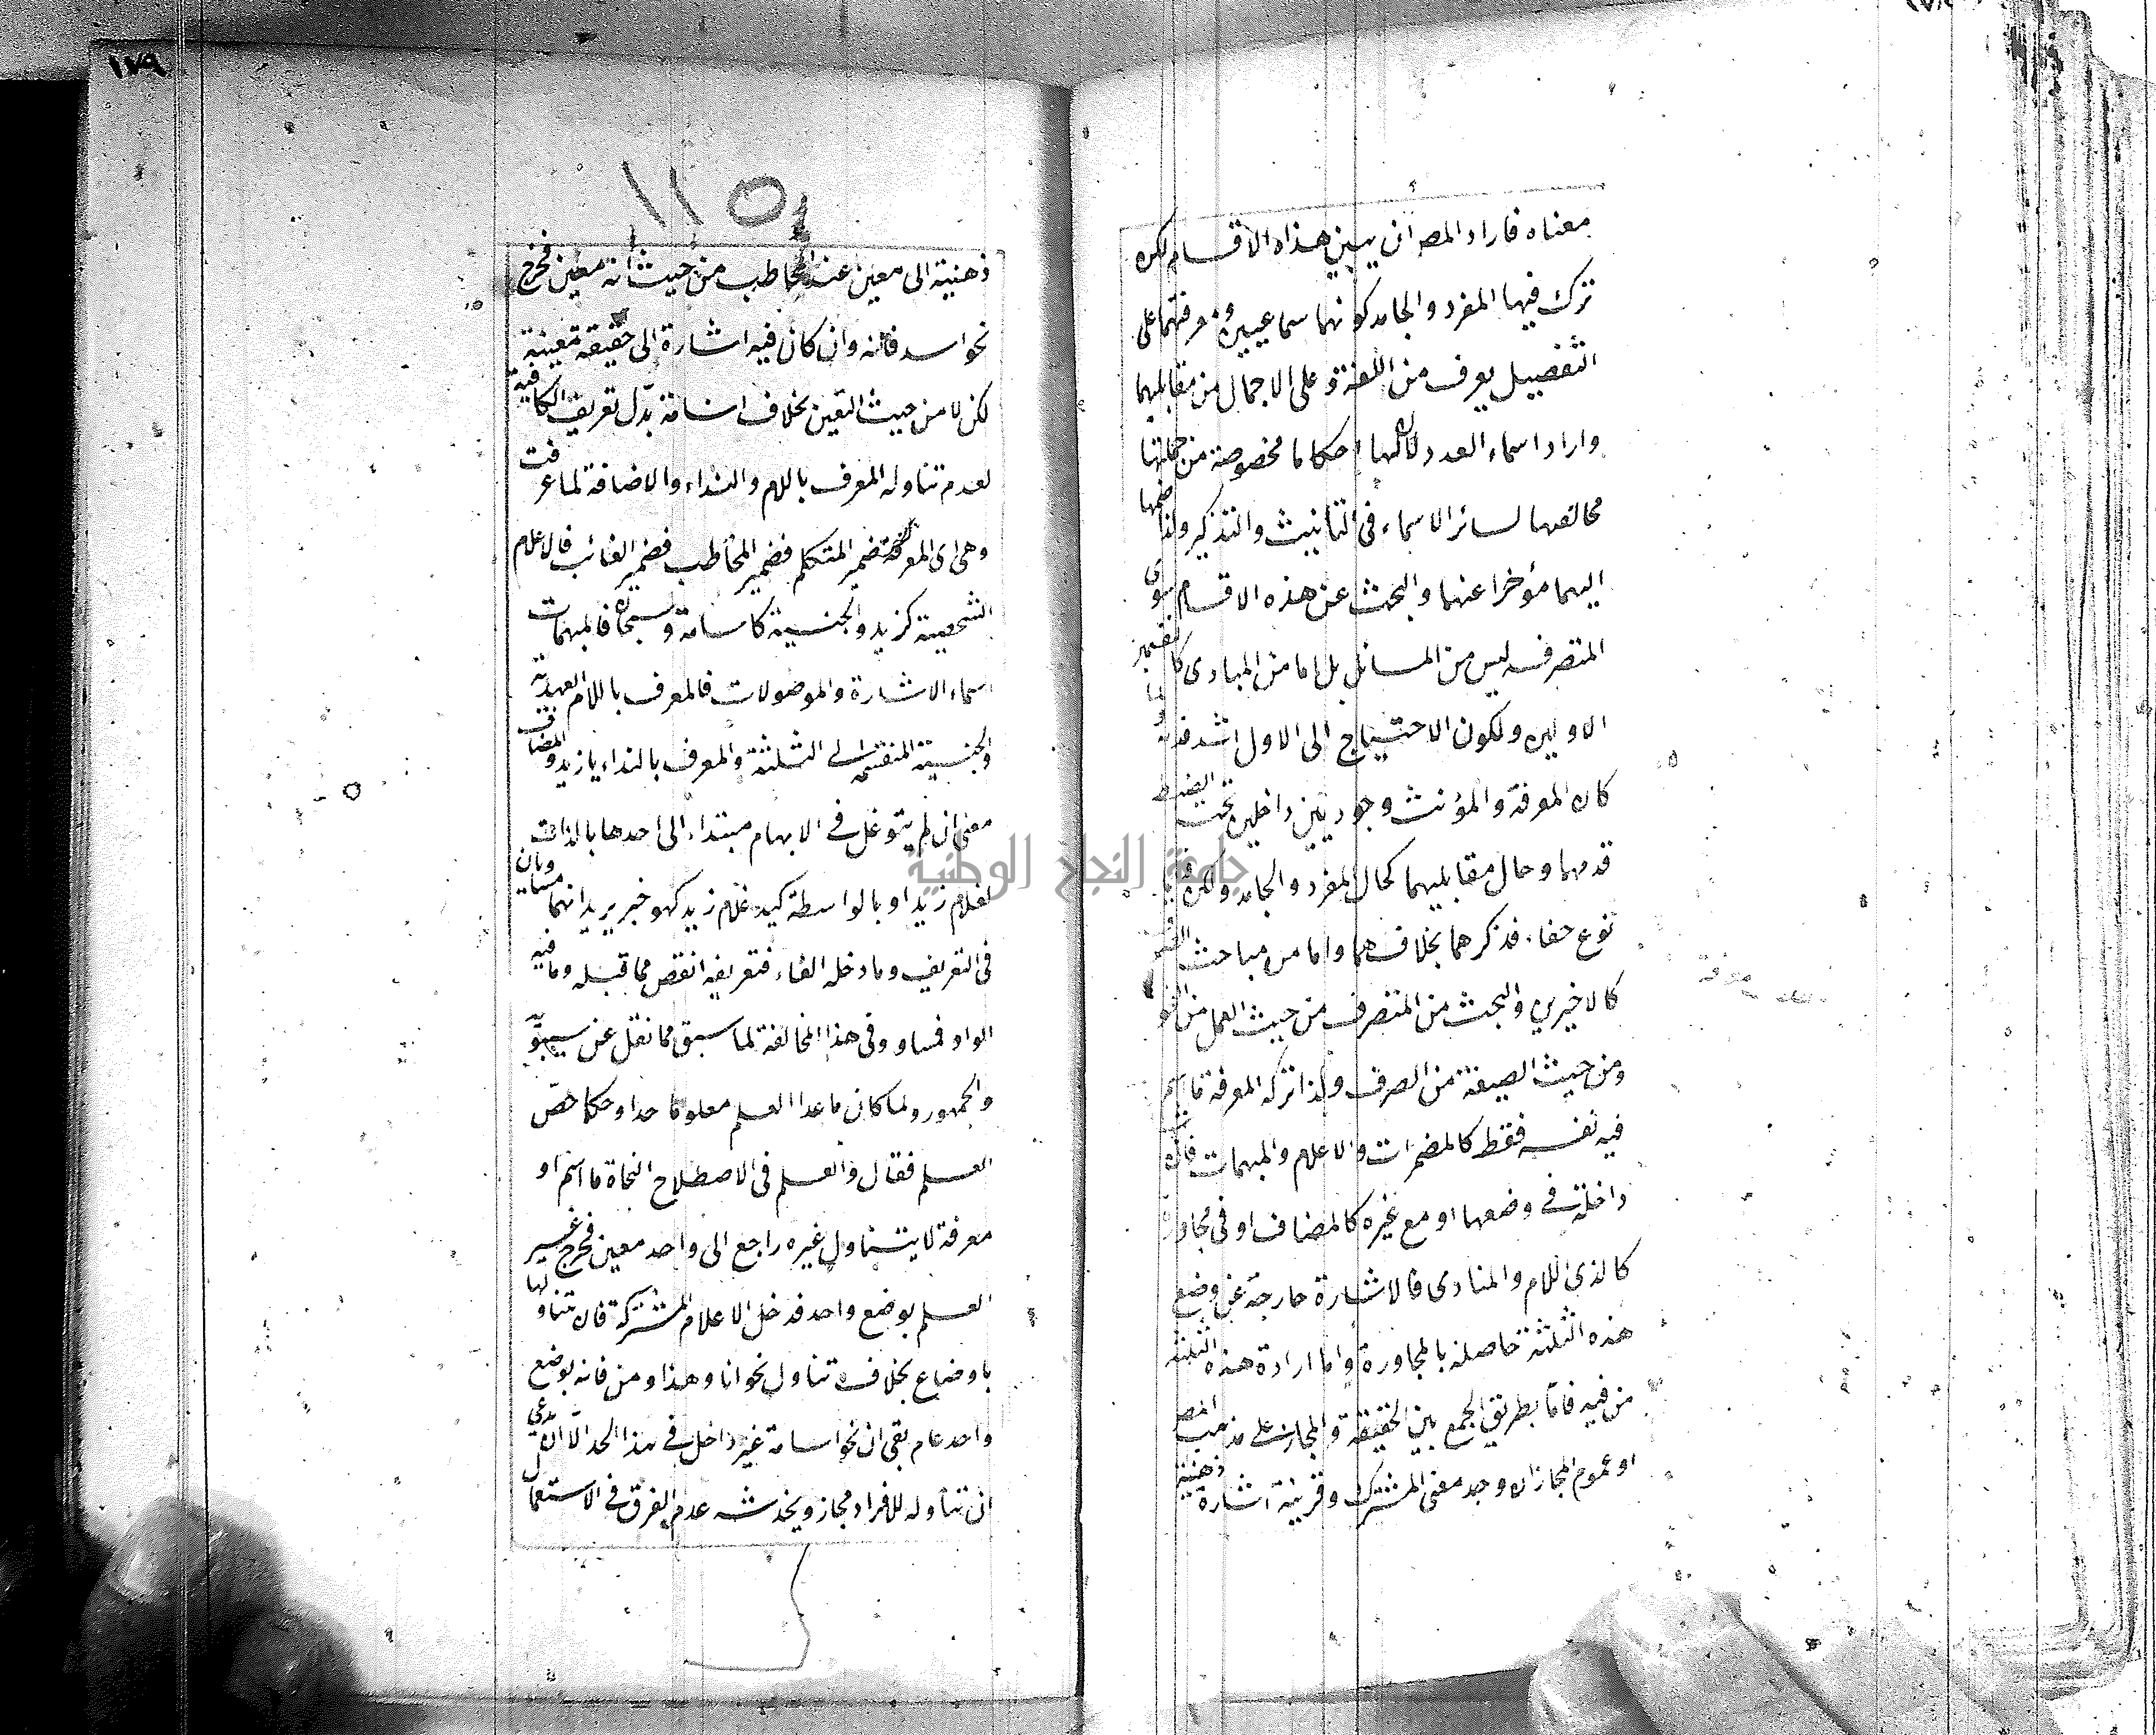 معناه فاراد المصه ان يبين هذه الاقسام لكن
ترك فيها المفرد والجامد كونهما سماعيين ومعرفتهما على
التفصيل يعرف من اللغة وعلى الاجمال من مقابليهما
واراد اسماء العدد لان لها احكاما مخصوصة من جملتها
مخالفتها لسائر الاسماء فى التأنيث والتذكير ولذا ضمها
اليهما مؤخرا عنهما والبحث عن هذه الاقسام سوى
المتصرف ليس من المسائل بل اما من المبادى كا
الاوليين ولكون الاحتياج الى الاول اشد قد
كان المعرفة والمؤنث وجوديين داخلين تحت الضبط
قدمهما وحال مقابليهما كحال المفرد والجامد ولكن
نوع خفاء فذكرهما بخلافهما واما من مباحث
كالاخيرين والبحث من المتصرف من حيث العمل من النحو
ومن حيث الصيغة من الصرف ولذا تركه المعرفة ما اسم
فيه نفسه فقط كالمضمرات والاعلام والمبهمات فان
داخلة فى وضعها او مع غيره كالمضاف او فى مجاور
كالذى اللام والمنادى فالاشارة خارجة عن وضع
هذه الثلثة حاصلة بالمجاورة واما ارادة هذه الثلثة
من فيه فاما بطريق الجمع بين الحقيقة والمجاز على مذهب المصه
او عموم المجاز ان وجد معنى المشترك وقرينة اشارة ذهنية
١٧٩
١١٥
ذهنية الى معين عند المخاطب من حيث انه معين فخرج
نحو اسد فانه وان كان فيه اشارة الى حقيقة معينة
لكن لا من حيث التعين بخلاف اسامة بدل تعريف الكافية
لعدم تناوله المعرف باللام والنداء والاضافة لما عرفت
وهى اى المعرفة ضمير المتكلم فضمير المخاطب فضمير الغائب فالاعلام
الشخصية كزيد والجنسية كاسامة وسبحان فالمبهمات
اسماء الاشارة والموصولات فالمعرف باللام العهدية
والجنسية المنقسمة الى الثلثة والمعرف بالنداء يا زيد والمضاف
معنى ان لم يتوغل فى الابهام مبتداء الى احدها بالذات
لغلام زيد او بالواسطة كيد غلام زيد كهو خبر يريد انهما متساويان
فى التعريف وما دخله الفاء فتعريفه انقص مما قبله وما فيه
الواو فمساو وفى هذا المخالفة لما سبق مما نقل عن سيبويه
والجمهور ولما كان ما عدا العلم معلوما حدا وحكما خص
العلم فقال والعلم فى الاصطلاح النحاة ما اسم او
معرفة لا يتناول غيره راجع الى واحد معين فخرج غير
العلم بوضع واحد فدخل الاعلام المشتركة فان تناولها
باوضاع بخلاف تناول نحو انا وهذا ومن فانه بوضع
واحد عام بقى ان نحو اسامة غير داخل فى هذا الحد الا ان يدعى
ان تناوله للافراد مجاز ويخدشه عدم الفرق فى الاستعمال
جامعة النجاح الوطنية